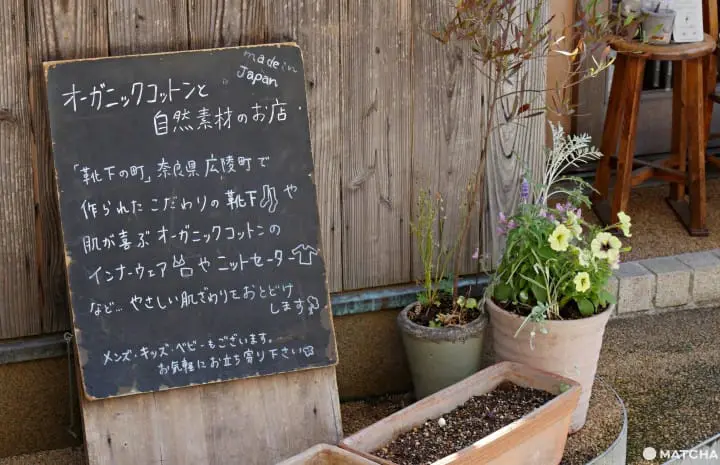 made in
Japan
オーガニックコットンと
自然素材のお店.
「靴下の町」奈良県広陵町で
作られたこだわりの靴下や
肌が喜ぶオーガニックコットンの
インナーウェアやニットセーター
など…やさしい肌ざわりをおとどけ
します
メンズ・キッズ・ベビーもございます。
お気軽にお立ち寄り下さい
MATCHA